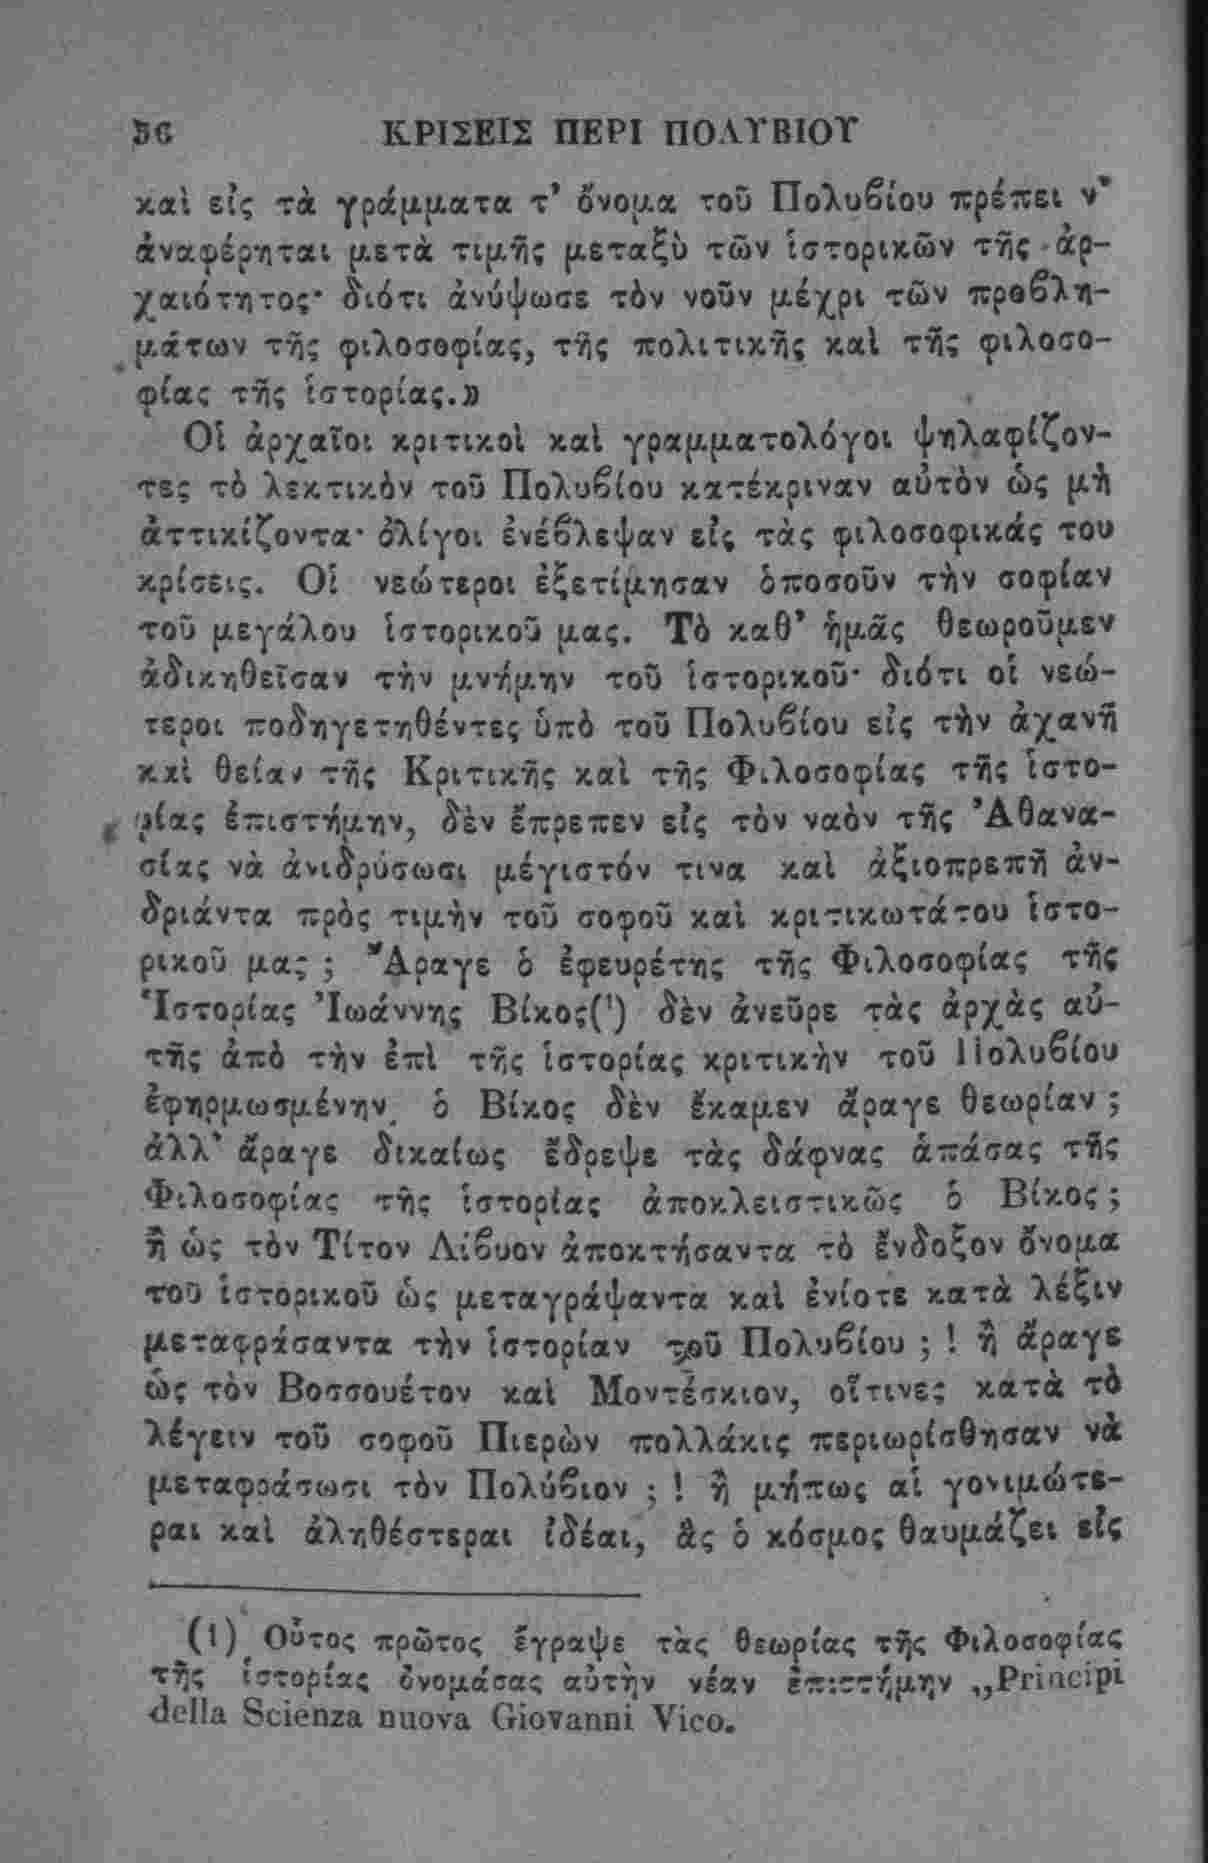 56 ΚΡΙΣΕΙΣ ΠΕΡΙ ΠΟΛΥΒΙΟΥ
καὶ εἰς τὰ γράμματα τ’ ὄνομα τοῦ Πολυβίου πρέπει ν’
ἀναφέρηται μετὰ τιμῆς μεταξὺ τῶν ἱστορικῶν τῆς ἀρ-
χαιότητος· διότι ἀνύψωσε τὸν νοῦν μέχρι τῶν προβλη-
μάτων τῆς φιλοσοφίας, τῆς πολιτικῆς καὶ τῆς φιλοσο-
φίας τῆς ἱστορίας.»
Οἱ ἀρχαῖοι κριτικοὶ καὶ γραμματολόγοι ψηλαφίζον-
τες τὸ λεκτικὸν τοῦ Πολυβίου κατέκριναν αὐτὸν ὡς μὴ
ἀττικίζοντα· ὀλίγοι ἐνέβλεψαν εἰς τὰς φιλοσοφικάς του
κρίσεις. Οἱ νεώτεροι ἐξετίμησαν ὁποσοῦν τὴν σοφίαν
τοῦ μεγάλου ἱστορικοῦ μας. Τὸ καθ’ ἡμᾶς θεωροῦμεν
ἀδικηθεῖσαν τὴν μνήμην τοῦ ἱστορικοῦ· διότι οἱ νεώ-
τεροι ποδηγετηθέντες ὑπὸ τοῦ Πολυβίου εἰς τὴν ἀχανῆ
καὶ θείαν τῆς Κριτικῆς καὶ τῆς Φιλοσοφίας τῆς ἱστο-
ρίας ἐπιστήμην, δὲν ἔπρεπεν εἰς τὸν ναὸν τῆς Ἀθανα-
σίας νὰ ἀνιδρύσωσι μέγιστόν τινα καὶ ἀξιοπρεπῆ ἀν-
δριάντα πρὸς τιμὴν τοῦ σοφοῦ καὶ κριτικωτάτου ἱστο-
ρικοῦ μας ; Ἆραγε ὁ ἐφευρέτης τῆς Φιλοσοφίας τῆς
Ἱστορίας Ἰωάννης Βίκος(¹) δὲν ἀνεῦρε τὰς ἀρχὰς αὐ-
τῆς ἀπὸ τὴν ἐπὶ τῆς ἱστορίας κριτικὴν τοῦ Πολυβίου
ἐφηρμωσμένην, ὁ Βίκος δὲν ἔκαμεν ἄραγε θεωρίαν ;
ἀλλ’ ἄραγε δικαίως ἔδρεψε τὰς δάφνας ἁπάσας τῆς
Φιλοσοφίας τῆς ἱστορίας ἀποκλειστικῶς ὁ Βίκος ;
ἢ ὡς τὸν Τίτον Λίβυον ἀποκτήσαντα τὸ ἔνδοξον ὄνομα
τοῦ ἱστορικοῦ ὡς μεταγράψαντα καὶ ἐνίοτε κατὰ λέξιν
μεταφράσαντα τὴν ἱστορίαν τοῦ Πολυβίου ; ! ἢ ἄραγε
ὡς τὸν Βοσσουέτον καὶ Μοντέσκιον, οἵτινες κατὰ τὸ
λέγειν τοῦ σοφοῦ Πιερὼν πολλάκις περιωρίσθησαν νὰ
μεταφράσωσι τὸν Πολύβιον ; ! ἢ μήπως αἱ γονιμώτε-
ραι καὶ ἀληθέστεραι ἰδέαι, ἃς ὁ κόσμος θαυμάζει εἰς
(1) Οὗτος πρῶτος ἔγραψε τὰς θεωρίας τῆς Φιλοσοφίας
τῆς ἱστορίας ὀνομάσας αὐτὴν νέαν ἐπιστήμην „Principi
della Scienza nuova Giovanni Vico.